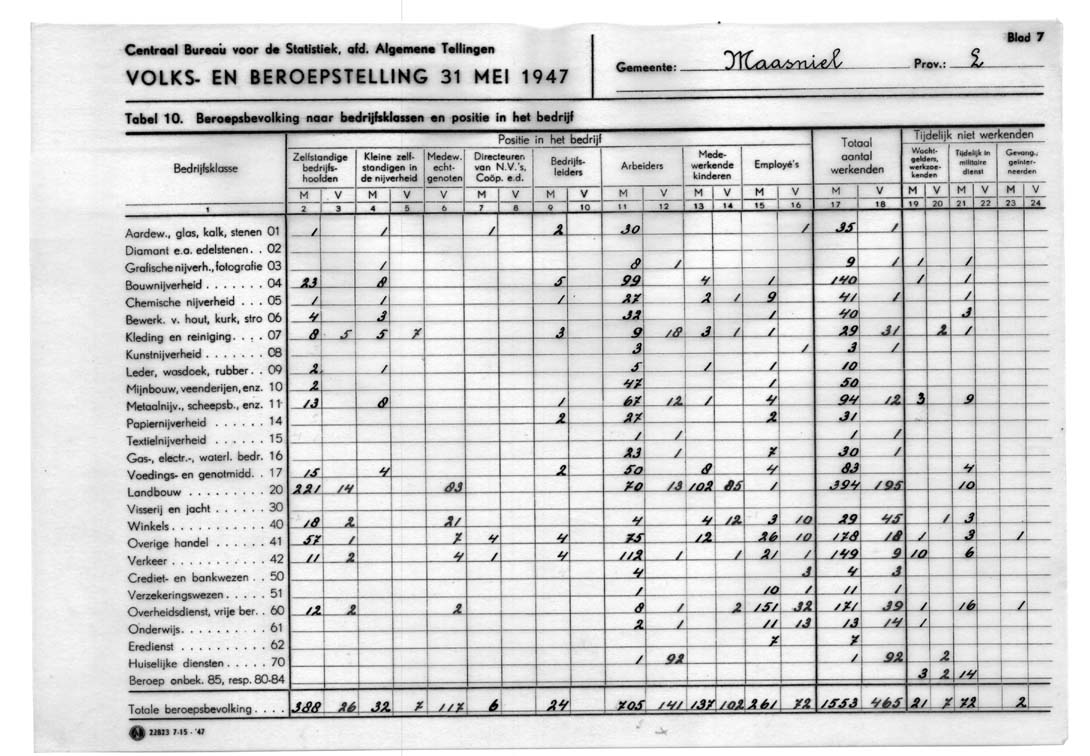 Centraal Bureau voor de Statistiek, afd. Algemene Tellingen
VOLKS- EN BEROEPSTELLING 31 MEI 1947
Gemeente: Maasniel Prov.: L
Blad 7
Tabel 10. Beroepsbevolking naar bedrijfsklassen en positie in het bedrijf
Bedrijfsklasse
Positie in het bedrijf
Totaal aantal werkenden
Tijdelijk niet werkenden
Zelfstandige bedrijfshoofden
Kleine zelfstandigen in de nijverheid
Medew. echtgenoten
Directeuren van N.V.'s, Coöp. e.d.
Bedrijfsleiders
Arbeiders
Medewerkende kinderen
Employé's
Wachtgelders, werkzoekenden
Tijdelijk in militaire dienst
Gevang., geïnterneerden
M V M V V M V M V M V M V M V M V M V M V M V
1 2 3 4 5 6 7 8 9 10 11 12 13 14 15 16 17 18 19 20 21 22 23 24
Aardew., glas, kalk, stenen 01 1 1 1 2 30 1 35 1
Diamant e.a. edelstenen . . 02
Grafische nijverh., fotografie 03 1 8 1 9 1 1 1
Bouwnijverheid . . . . . . 04 23 8 5 99 4 1 140 1 1
Chemische nijverheid . . . 05 1 1 1 27 2 1 9 41 1 1
Bewerk. v. hout, kurk, stro 06 4 3 32 1 40 3
Kleding en reiniging . . . . 07 8 5 5 7 3 9 18 3 1 1 29 31 2 1
Kunstnijverheid . . . . . . . 08 3 1 3 1
Leder, wasdoek, rubber . . 09 2 1 5 1 1 10
Mijnbouw, veenderijen, enz. 10 2 47 1 50
Metaalnijv., scheepsb., enz. 11 13 8 1 67 12 1 4 94 12 3 9
Papiernijverheid . . . . . . 14 2 27 2 31
Textielnijverheid . . . . . . 15 1 1 1 1
Gas-, electr.-, waterl. bedr. 16 23 1 7 30 1
Voedings- en genotmidd. . 17 15 4 2 50 8 4 83 4
Landbouw . . . . . . . . . 20 221 14 83 70 13 102 85 1 394 195 10
Visserij en jacht . . . . . . 30
Winkels . . . . . . . . . . . 40 18 2 21 4 4 12 3 10 29 45 1 3
Overige handel . . . . . . . 41 57 1 7 4 4 75 12 26 10 178 18 1 3 1
Verkeer . . . . . . . . . . . 42 11 2 4 1 4 112 1 1 21 1 149 9 10 6
Crediet- en bankwezen . . 50 4 3 4 3
Verzekeringswezen . . . . . 51 1 10 1 11 1
Overheidsdienst, vrije ber. . 60 12 2 2 8 1 2 151 32 171 39 1 16 1
Onderwijs . . . . . . . . . . 61 2 1 11 13 13 14 1
Eredienst . . . . . . . . . . 62 7 7
Huiselijke diensten . . . . . 70 1 92 1 92 2
Beroep onbek. 85, resp. 80-84 3 2 14
Totale beroepsbevolking . . . . 388 26 32 7 117 6 24 705 141 137 102 261 72 1553 465 21 7 72 2
22823 7-15 - '47